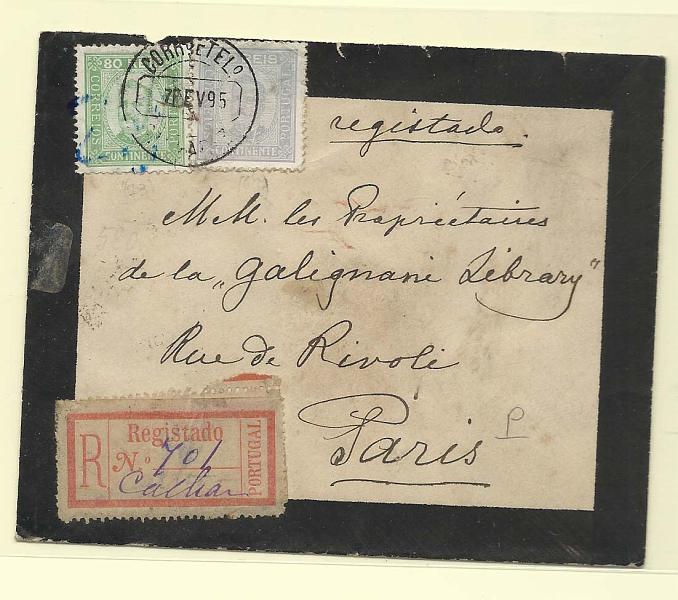 80
REIS
CORREIOS
PORTUGAL
CONTINENTE
CONTINENTE
CORRº E TELº
7 FEV 95
registado.
M.M. les Propriétaires
de la „Galignani Library"
Rue de Rivoli
Paris
P
R
Registado
N.º 701
PORTUGAL